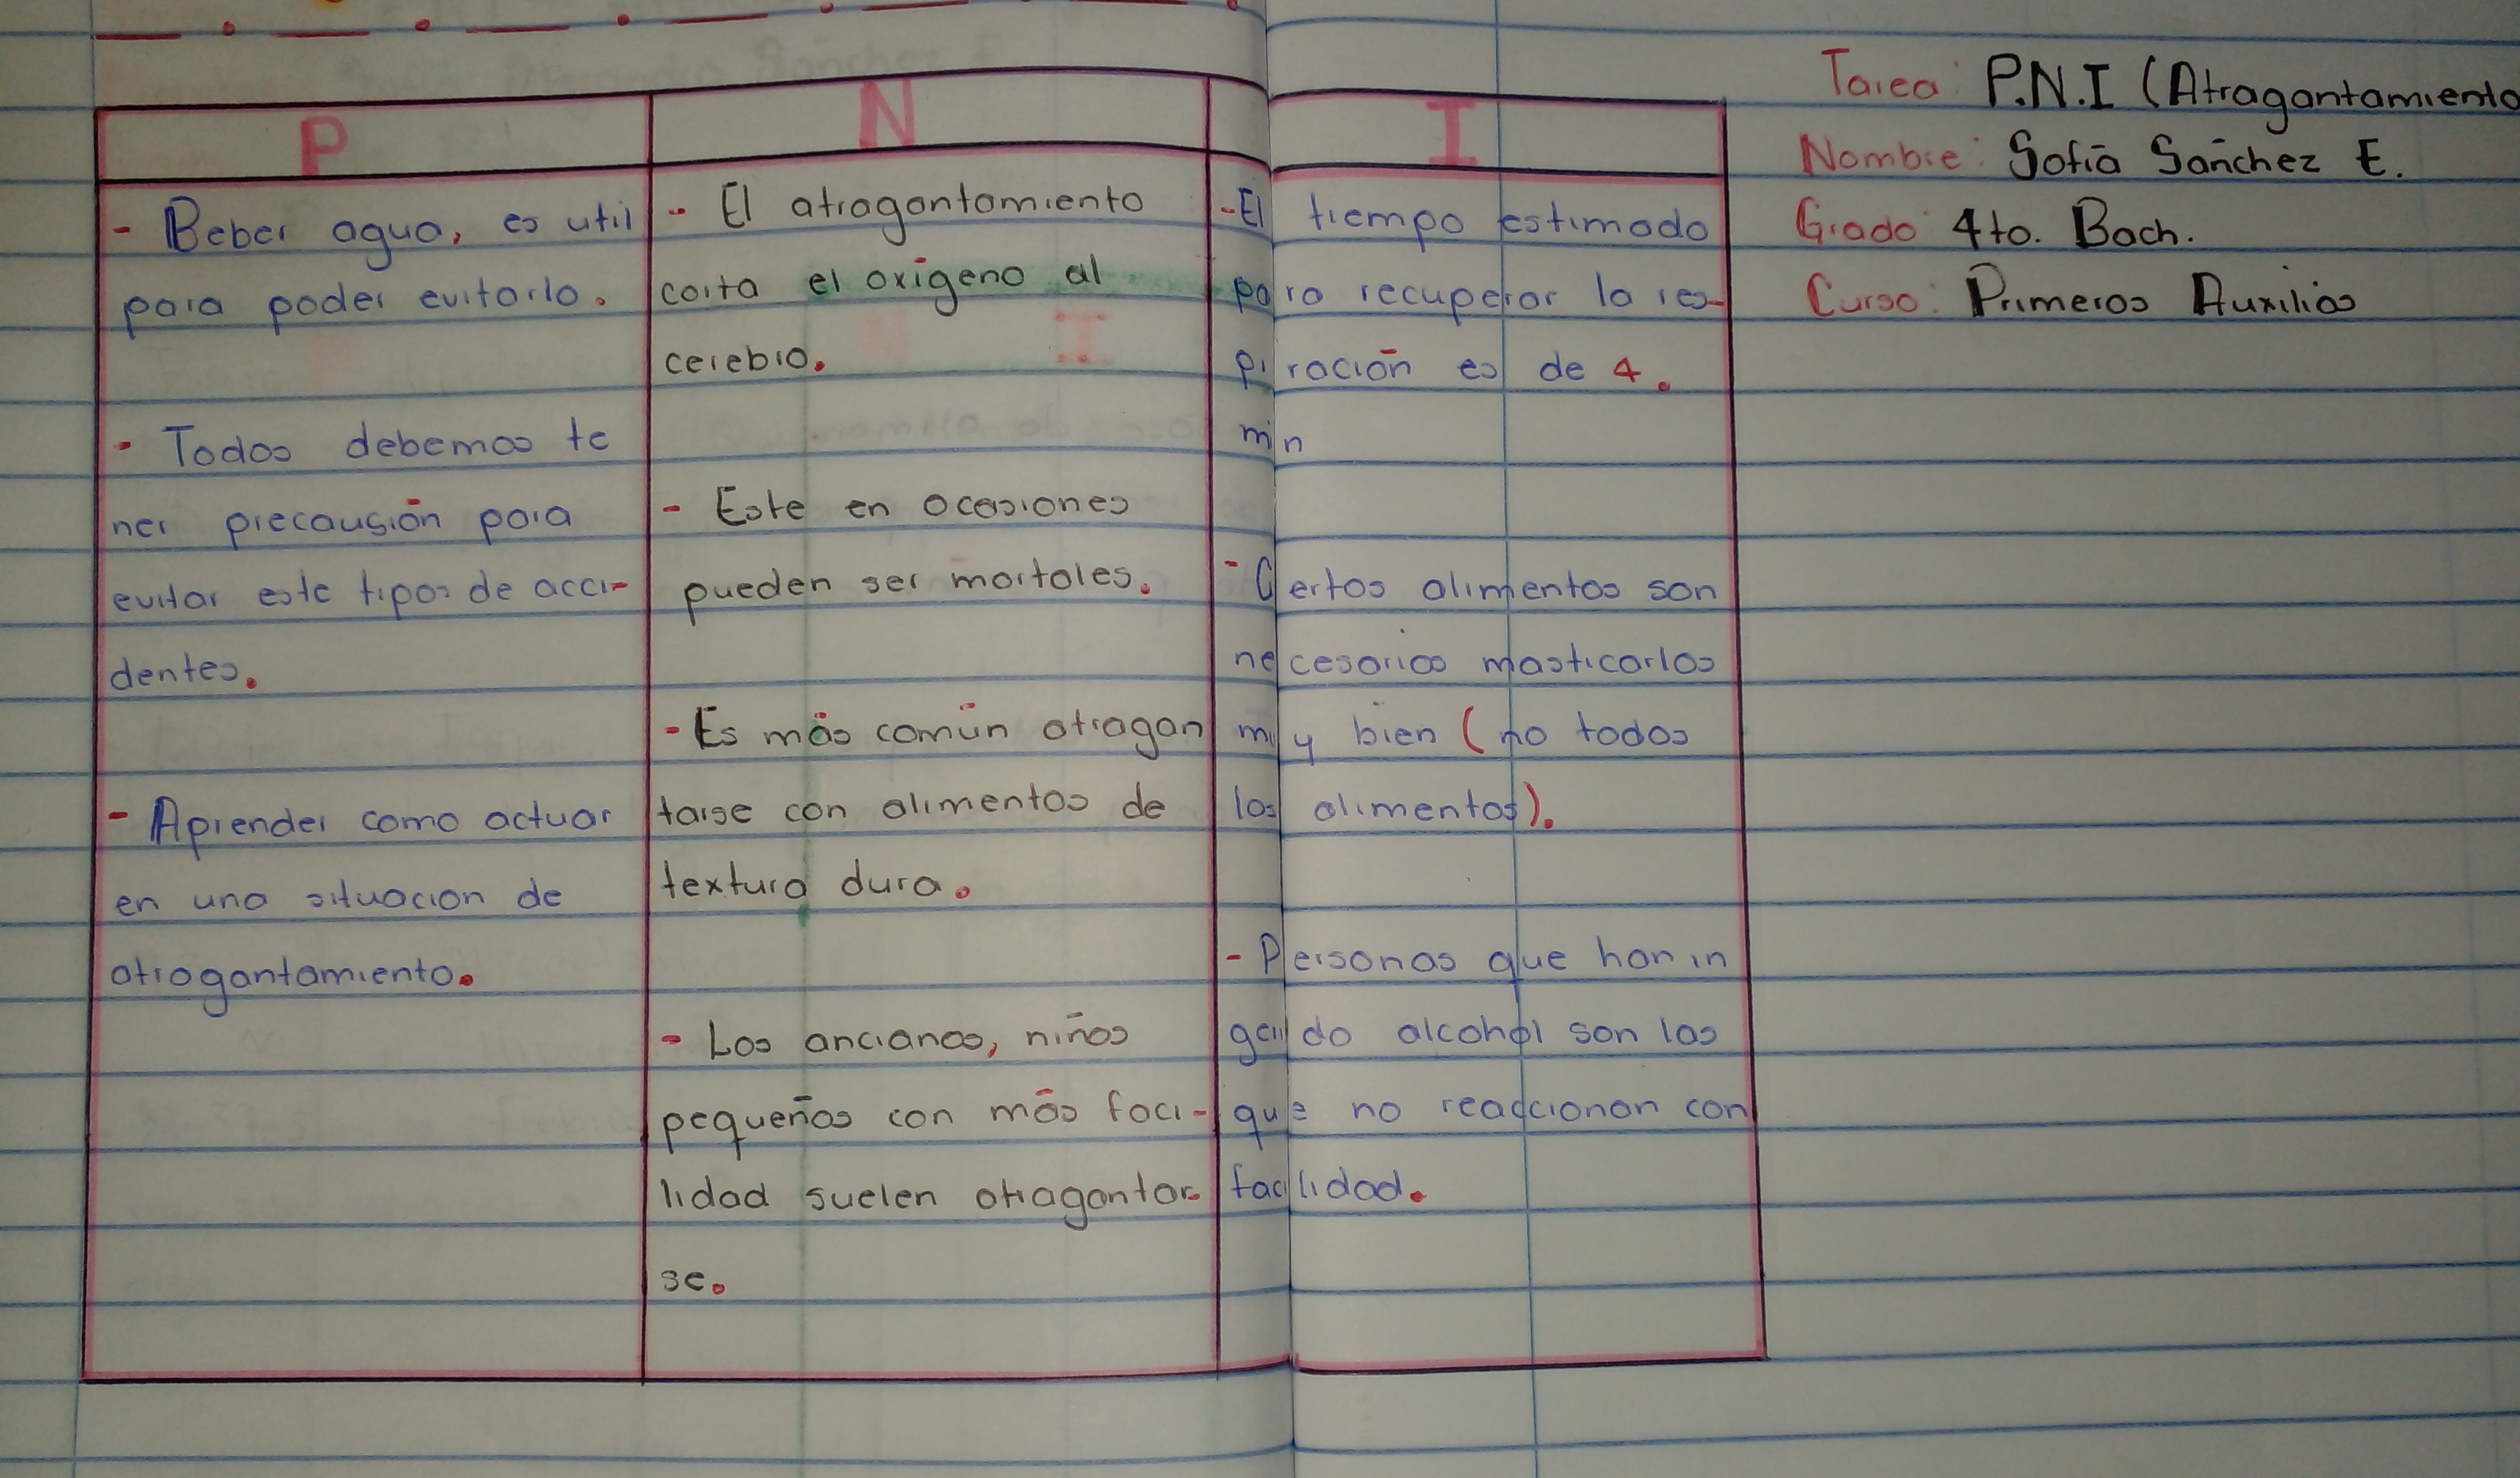 P
- Beber agua, es util
para poder evitarlo.
- Todos debemos te
ner precausión para
evitar este tipos de acci-
dentes.
- Aprender como actuar
en una situacion de
atragantamiento.
N
- El atragantamiento
corta el oxigeno al
cerebro.
- Este en ocasiones
pueden ser mortales.
- Es más común atragan
tarse con alimentos de
textura dura.
- Los ancianos, niños
pequeños con más faci-
lidad suelen atragantar-
se.
I
- El tiempo estimado
para recuperar la res-
piración es de 4.
min
- Ciertos alimentos son
necesarios masticarlos
muy bien (no todos
los alimentos).
- Personas que han in
gerido alcohol son las
que no reaccionan con
facilidad.
Tarea: P.N.I (Atragantamiento
Nombre: Sofía Sánchez E.
Grado: 4to. Bach.
Curso: Primeros Auxilios